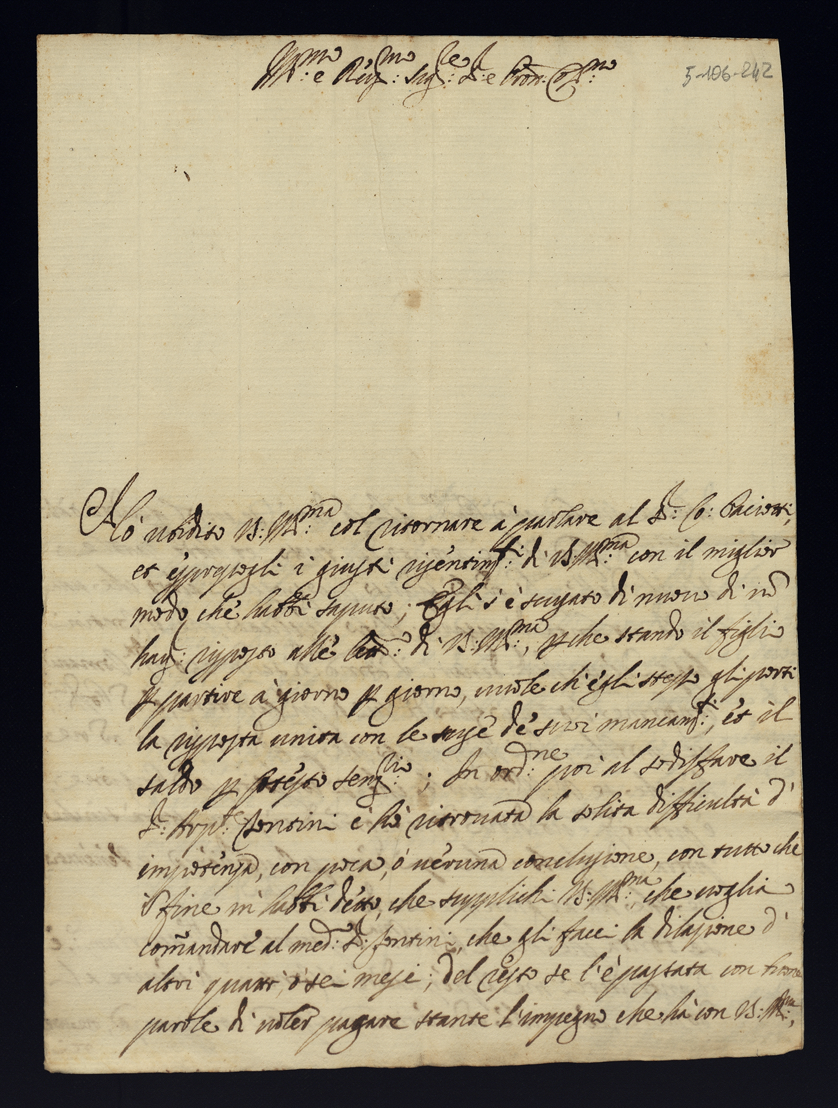 Ill:mo e Rev:mo Sig:re Sr: e Pron: Col:mo
5-106-242
Hò ubidito V: Ill:ma col ritornare à parlare al Sr: Co: Paciotti,
et espostogli i giusti risentim:ti di V: Ill:ma con il miglior
modo che habbi saputo; Egli s'è scusato di nuovo di nõ
haver risposto alle di V: Ill:ma, p che stando il figlio
p partire à giorno p giorno, vuole ch'egli stesso gli porti
la risposta unita con le scuse de suoi mancam:ti, et il
saldo p ; In ord:ne poi al sodisfare il
Sr: Fontini è hò ritrovata la solita difficultà d'
impotenza, con poca, ò veruna conclusione, con tutto che
il fine m'habbi detto, che supplichi V: Ill:ma, che voglia
comãndare al med: Sr: Fontini, che gli facci la dilazione d'
altri quattro, ò sei mesi; Del resto se l'è passata con buone
parole di voler pagare stante l'impegno che hà con V: Ill:ma,